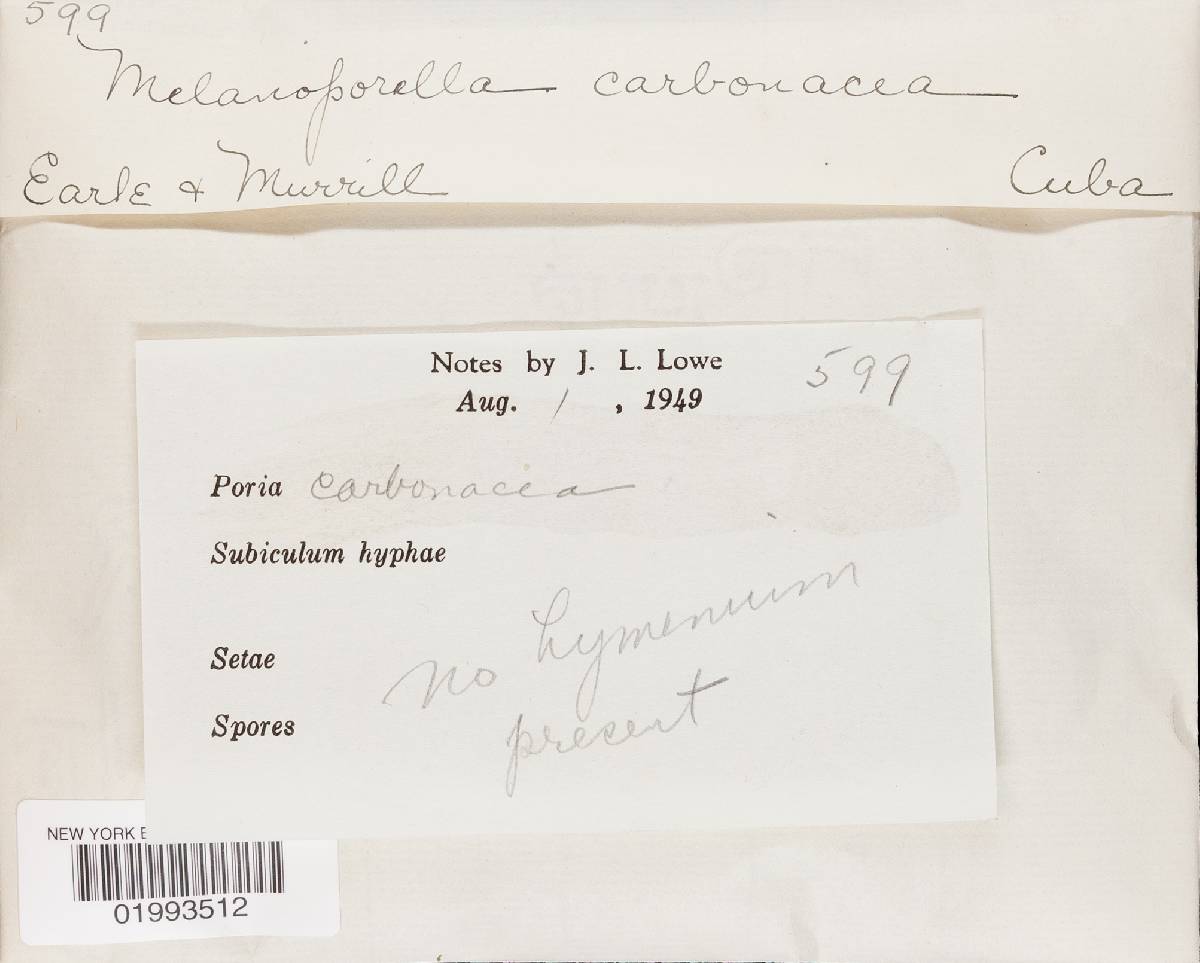 599
Melanoporella carbonacea
Earle & Murrill Cuba
Notes by J. L. Lowe 599
Aug. 1, 1949
Poria carbonacea
Subiculum hyphae
Setae
Spores
no hymenium
present
NEW YORK B
01993512